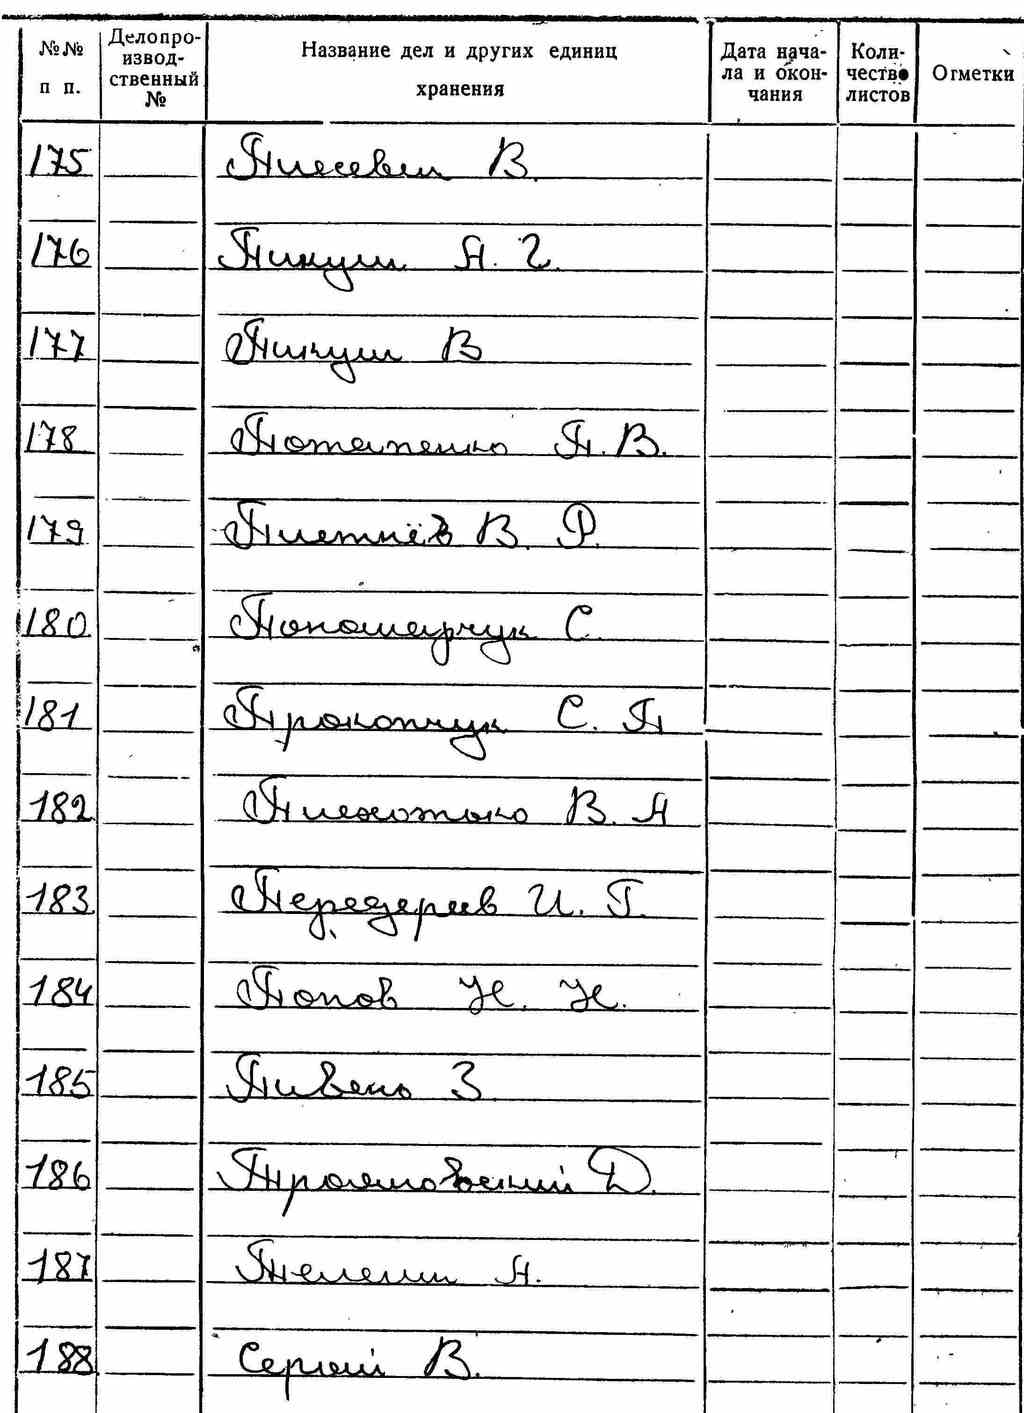 №№ п п.
Делопро-
извод-
ственный
№
Название дел и других единиц
хранения
Дата нача-
ла и окон-
чания
Коли-
чество
листов
Отметки
175 В.
176 Пикуш А. Г.
177 Пикуш В
178 Потапенко П. В.
179 Плетнёв В. Р.
180 Пономарчук С.
181 Прокопчук С. П
182 Плехотько В. А
183 Передерив И. Г.
184 Попов Н. Н.
185 Пивень З
186 Д.
187 А.
188 Серый В.